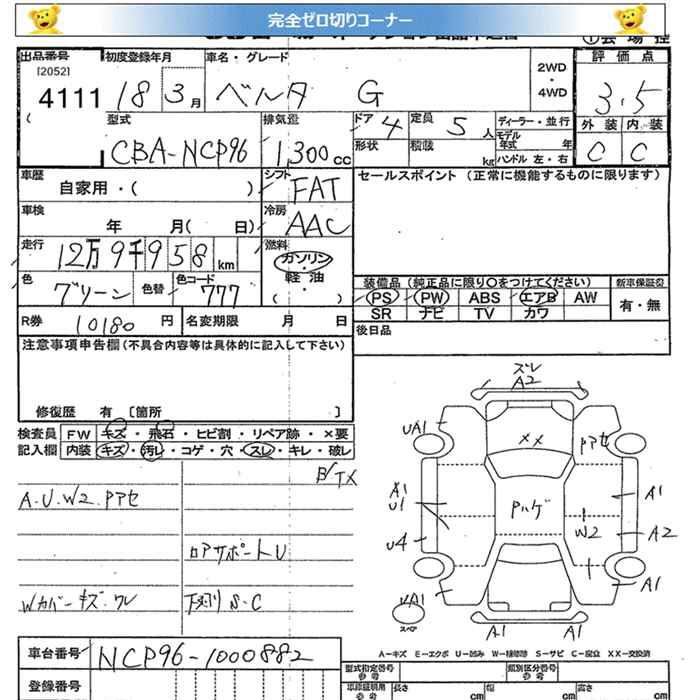 完全ゼロ切りコーナー
出品番号 初度登録年月 車名・グレード 評価点
[2052]
4111 18 3月 ベルタ G 2WD ・ 4WD 3.5
型式 排気量 ドア 定員 ディーラー・並行 外装 内装
CBA-NCP96 1,300cc 4 5人 モデル年式 年 C C
形状 積載 kg ハンドル 左・右
車歴 シフト セールスポイント (正常に機能するものに限ります)
自家用・( ) FAT
車検 冷房
年 月( 日) AAC
走行 燃料
12万9千958km ガソリン
色 色替 色コード 軽・油 装備品 (純正品に限り○をつけてください) 新車保証書
グリーン 777 ( ) PS PW ABS エアB AW 有・無
SR ナビ TV カワ
R券 10180円 名変期限 月 日 後日品
注意事項申告欄(不具合内容等は具体的に記入して下さい)
修復歴 有 [箇所 ]
検査員 FW キズ・飛石・ヒビ割・リペア跡・×要
記入欄 内装 キズ・汚レ・コゲ・穴・スレ・キレ・破レ
A.U.W2.Pアセ
ロアサポートU
Wカバーキズ.ワレ 下廻りS.C
ズレ
A2
UA1
××
Pアセ
A1
U1
Pハゲ
A1
W2
A2
U4
A1
スペア
A1 A1
A-キズ E-エクボ U-凹み W-補修跡 S-サビ C-腐食 XX-交換済
車台番号 NCP96-1000882
登録番号
型式指定番号 参考 類別区分番号 参考
長さ 幅 高さ